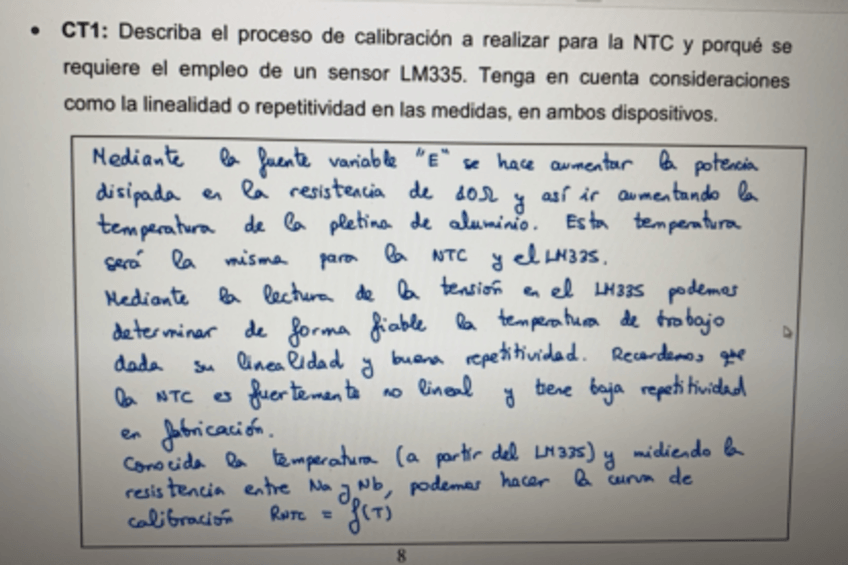 • CT1: Describa el proceso de calibración a realizar para la NTC y porqué se
requiere el empleo de un sensor LM335. Tenga en cuenta consideraciones
como la linealidad o repetitividad en las medidas, en ambos dispositivos.
Mediante la fuente variable "E" se hace aumentar la potencia
disipada en la resistencia de 10Ω y así ir aumentando la
temperatura de la pletina de aluminio. Esta temperatura
será la misma para la NTC y el LM335.
Mediante la lectura de la tensión en el LM335 podemos
determinar de forma fiable la temperatura de trabajo
dada su linealidad y buena repetitividad. Recordemos que
la NTC es fuertemente no lineal y tiene baja repetitividad
en fabricación.
Conocida la temperatura (a partir del LM335) y midiendo la
resistencia entre Na y Nb, podemos hacer la curva de
calibración RNTC = f(T)
8